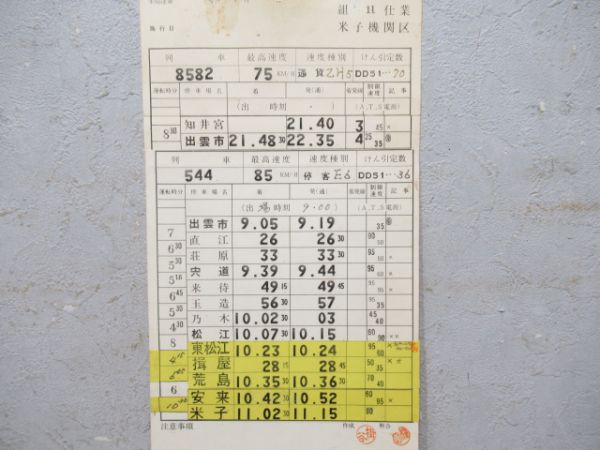 組 11 仕業
施行日 米子機関区
列 車 最高速度 速度種別 けん引定数
8582 75 KM/H 通貨 ZH5 DD51…70
運転時分 停車場名 着 発(通) 着発線 制限速度 記事
(出 時刻 ・ ) (A.T.S電源)
知井宮 21.40 3 45 ×
8 30 出雲市 21.48 30 22.35 4 25 35
列 車 最高速度 速度種別 けん引定数
544 85 KM/H 停客 E6 DD51…36
運転時分 停車場名 着 発(通) 着発線 制限速度 記事
(出場時刻 9.00) (A.T.S電源)
出雲市 9.05 9.19 35
7 直江 26 26 30
6 30 荘原 33 33 30
5 30 宍道 9.39 9.44
5 16 来待 49 15 49 45
6 45 玉造 56 30 57
5 30 乃木 10.02 30 03
4 30 松江 10.07 30 10.15
8 東松江 10.23 10.24
揖屋 28 15 28 45
荒島 10.35 30 10.36 30
6 安来 10.42 30 10.52
10 30 米子 11.02 30 11.15
注意事項 作成 照合